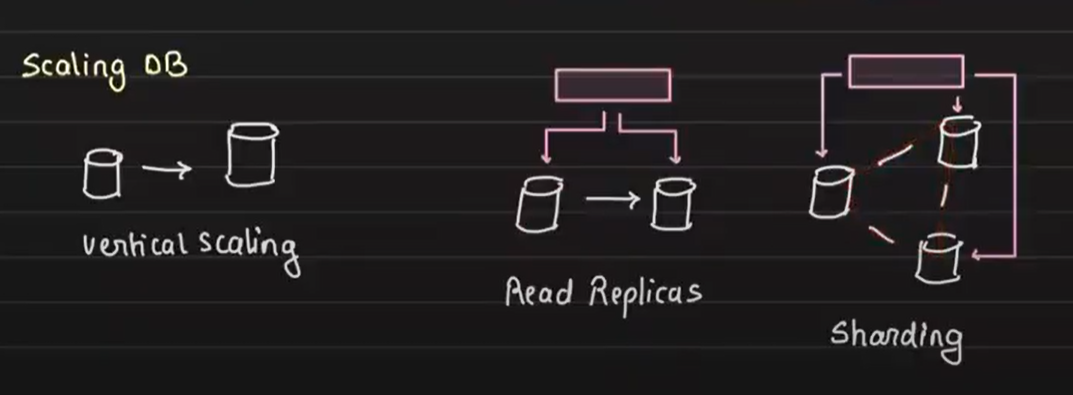 Scaling DB
vertical scaling
Read Replicas
Sharding